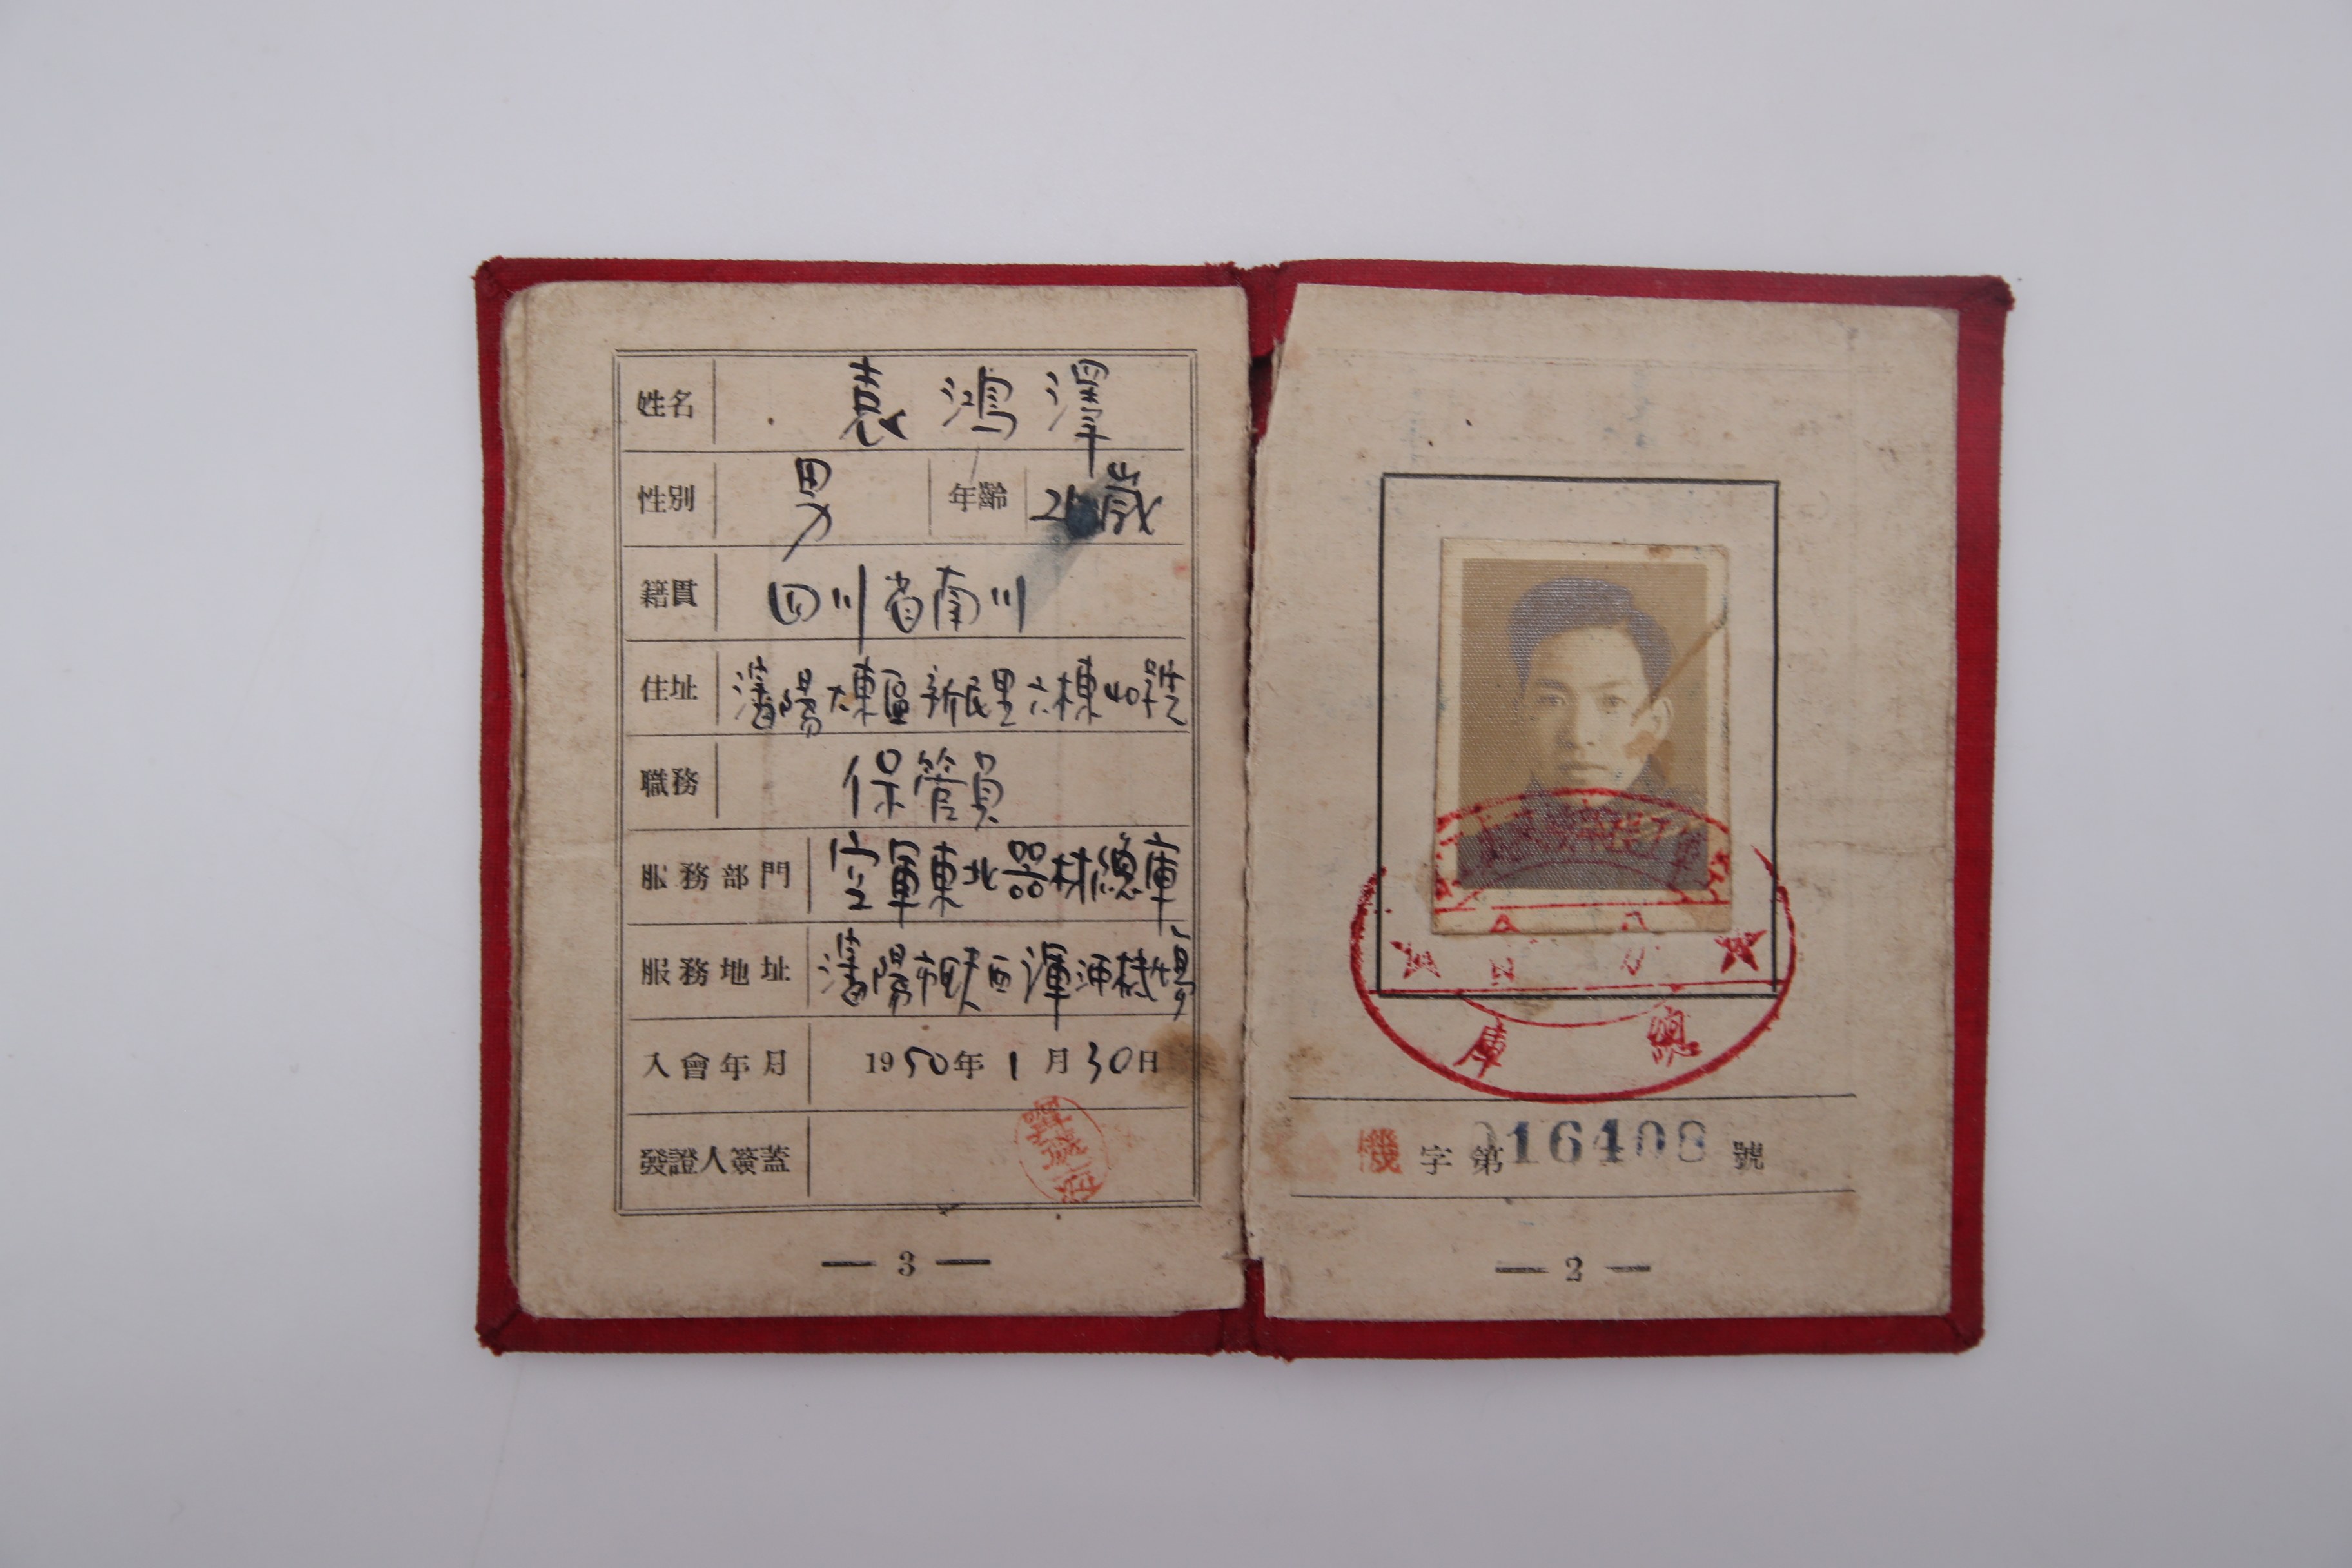 姓名 袁鴻澤
性別 男 年齡 2 歲
籍貫 四川省南川
住址 瀋陽大東區新民里六棟40號
職務 保管員
服務部門 空軍東北器材總庫
服務地址 瀋陽市鉄西渾河機場
入會年月 1950年1月30日
發證人簽蓋
— 3 —
分會
總庫
機字第016408號
— 2 —